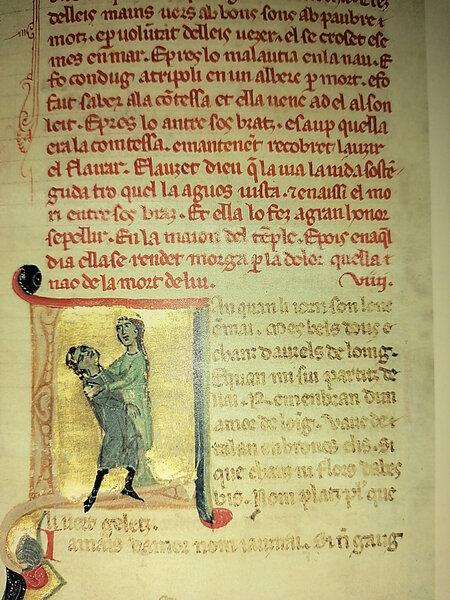 delleis mains uers ab bons sons ab paubre
motz. ep uolūtat delleis uezer. el se croset ese
mes en mar. Epres lo malautia en la nau. E
fo condug atripoli en un alberc p mort. efo
fait saber ala cōtessa et ella uenc ad el al son
leit. Epres lo antre sos bratz. esaup quella
era la comtessa. emantenēt recobret lauzir
el flairar. Elauzet dieu q̄ la uia la uida sosten
guda tro quel la agues uista. 7 enaissi el mo
ri entre sos braz. Et ella lo fez a gran honor
sepellir. En la maion del tēple. Epois enaql
dia ella se rendet morga p la dolor quella
nac de la mort de lui. VIIII.
an quan li iorn son lonc
ē mai. Mes bels dous
chans dauzels de loing.
Equan mi sui partitz de
lai. Remenbran dun
amor de loīg. Vauc de
talan enbroncs clis. Si
que chans ni flors dalbes
pis. Nom platz pl' que
liuern gelatz.
Iamais damor nom iauzirai. Si nō gaug